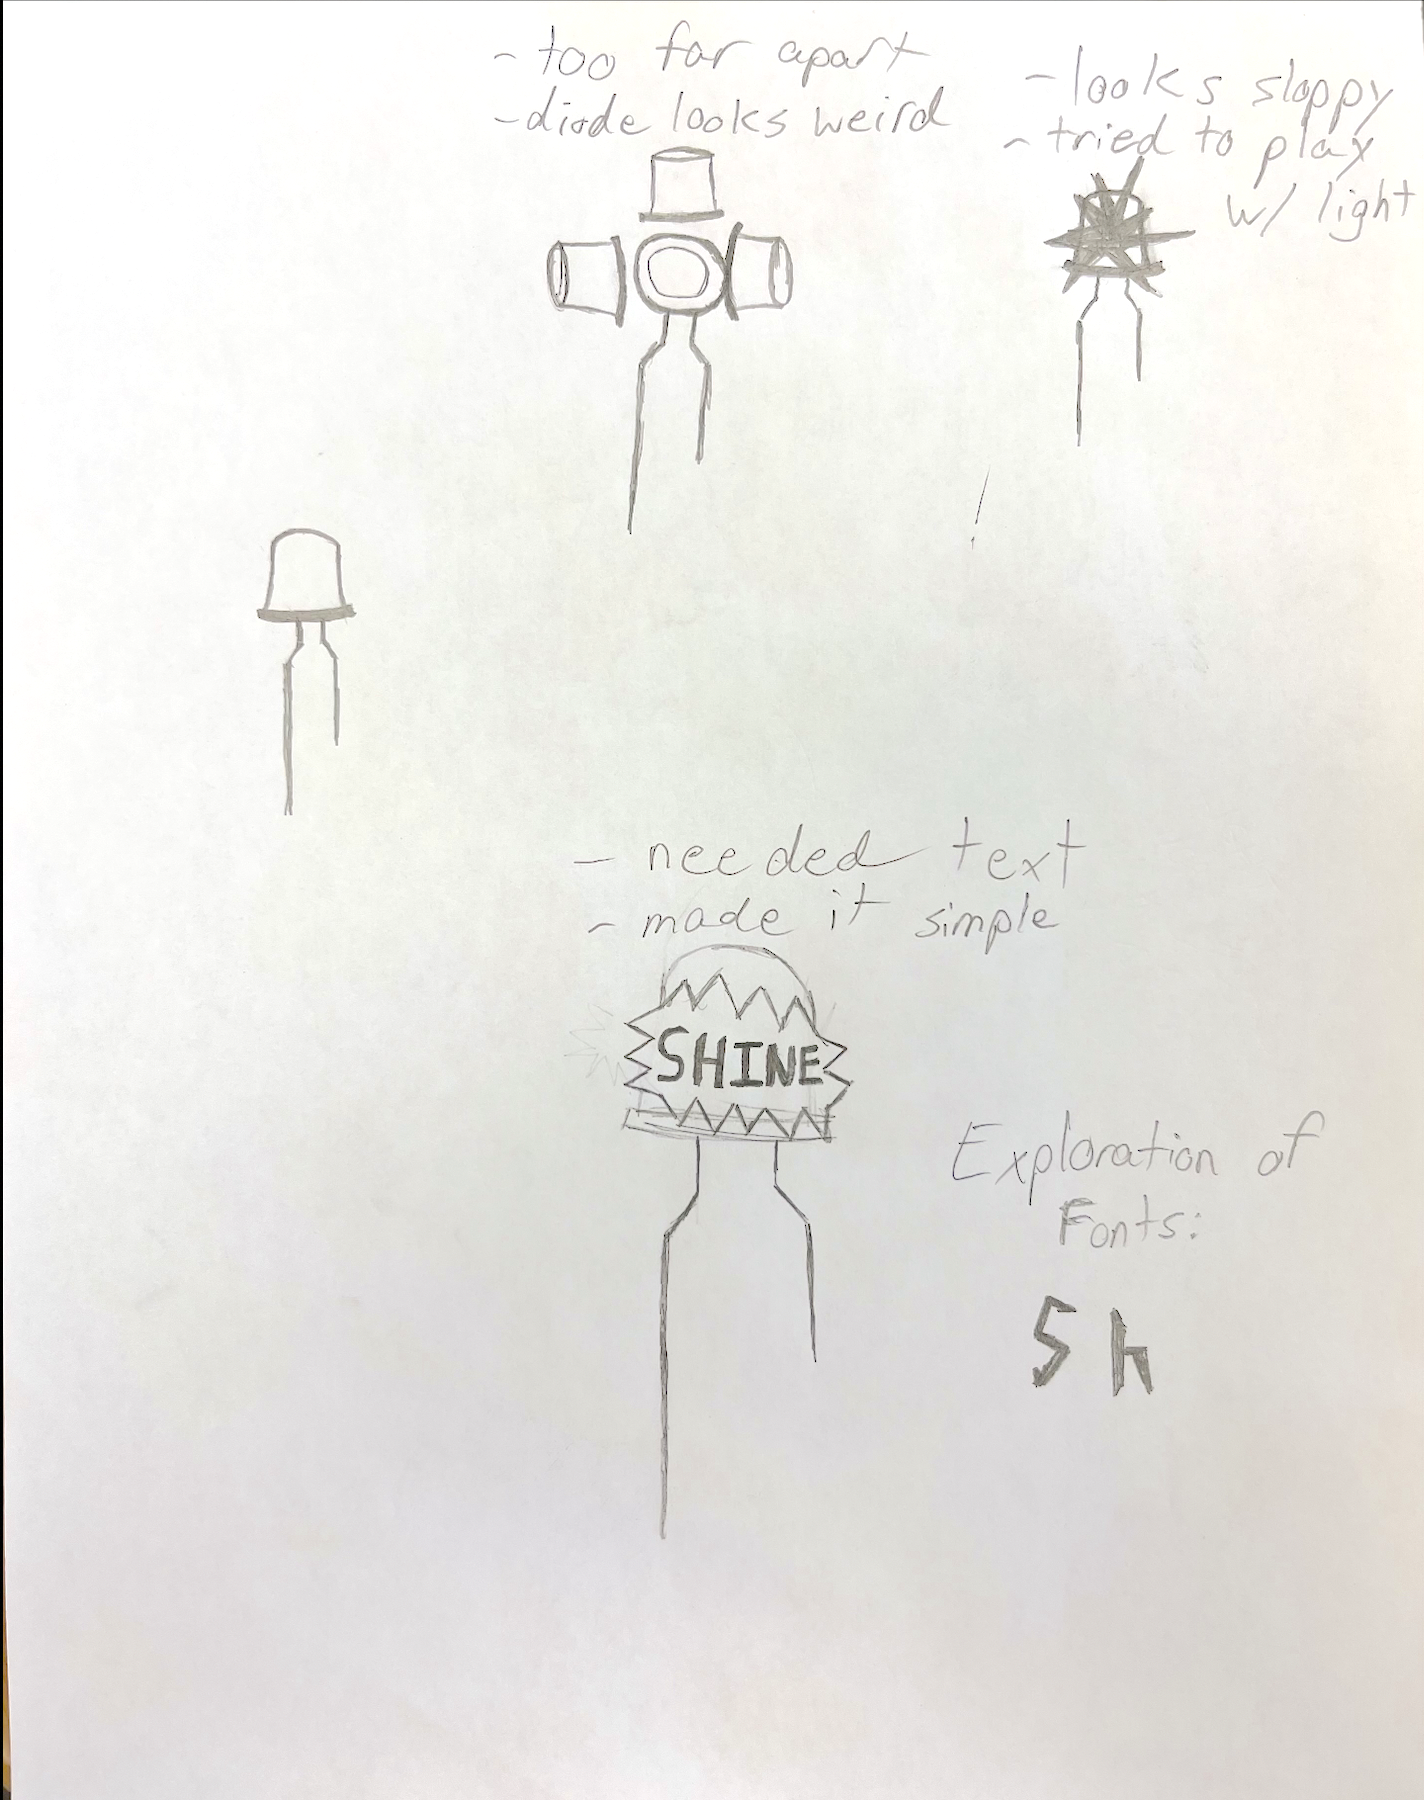 - too far apart
- diode looks weird
- looks sloppy
- tried to play
w/ light
- needed text
- made it simple
SHINE
Exploration of
Fonts:
Sh